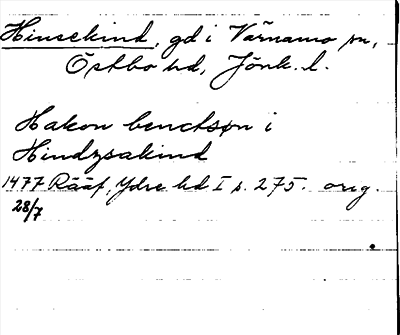 Hinsekind, gd i Värnamo sn,
Östbo hd, Jönk. l.
Hakon benctsøn i
Hindzsakind
1477 Rääf, Ydre hd I s. 275. orig.
28/7